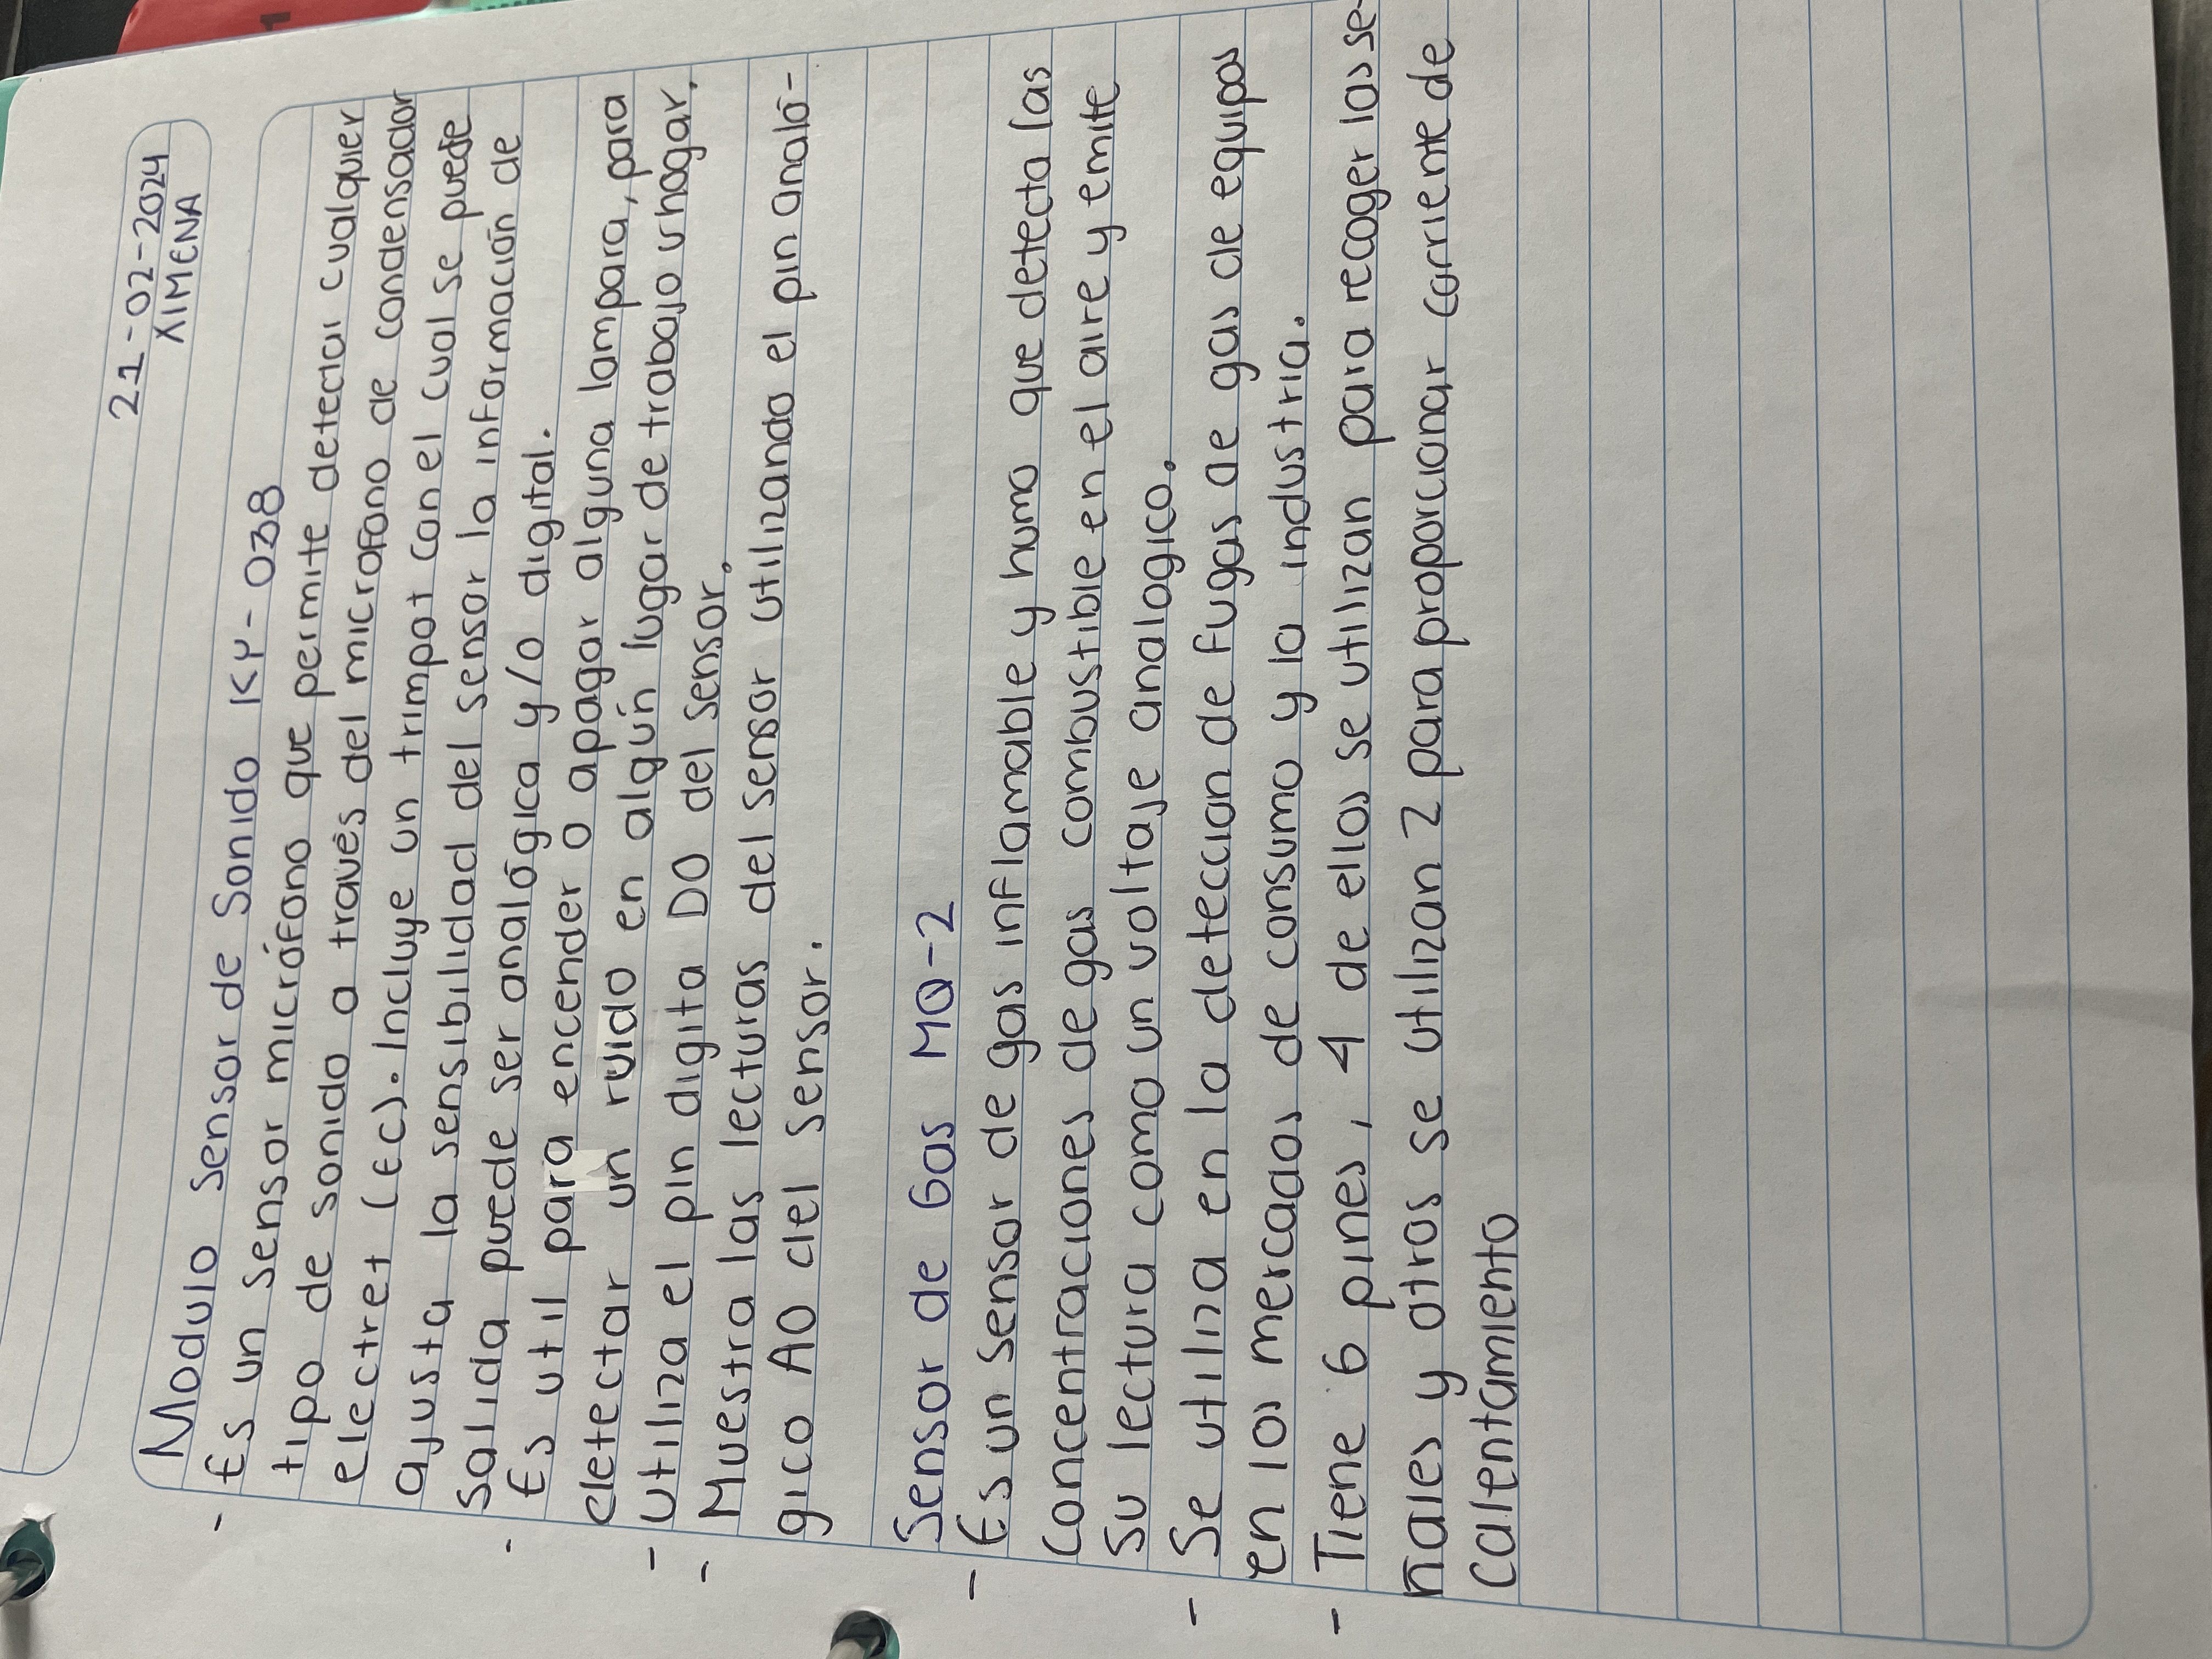 21-02-2024
XIMENA
Modulo Sensor de Sonido KY-038
- Es un sensor micrófono que permite detectar cualquier
tipo de sonido a través del microfono de condensador
electret (EC). Incluye un trimpot con el cual se puede
ajusta la sensibilidad del sensor la información de
salida puede ser analógica y/o digital.
- Es util para encender o apagar alguna lampara, para
detectar un ruido en algún lugar de trabajo u hogar.
- Utiliza el pin digita DO del sensor.
- Muestra las lecturas del sensor utilizando el pin analó-
gico AO del sensor.
Sensor de Gas MQ-2
- Es un sensor de gas inflamable y humo que detecta las
concentraciones de gas combustible en el aire y emite
su lectura como un voltaje analogico.
- Se utiliza en la deteccion de fugas de gas de equipos
en los mercados de consumo y la industria.
- Tiene 6 pines, 4 de ellos se utilizan para recoger las se-
ñales y otros se utilizan 2 para proporcionar corriente de
calentamiento